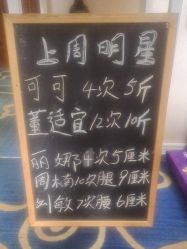 上周明星
可可 4次 5斤
董适宜 12次 10斤
丽娜 4次 5厘米
周木南 10次 腿 9厘米
刘敏 7次 腰 6厘米